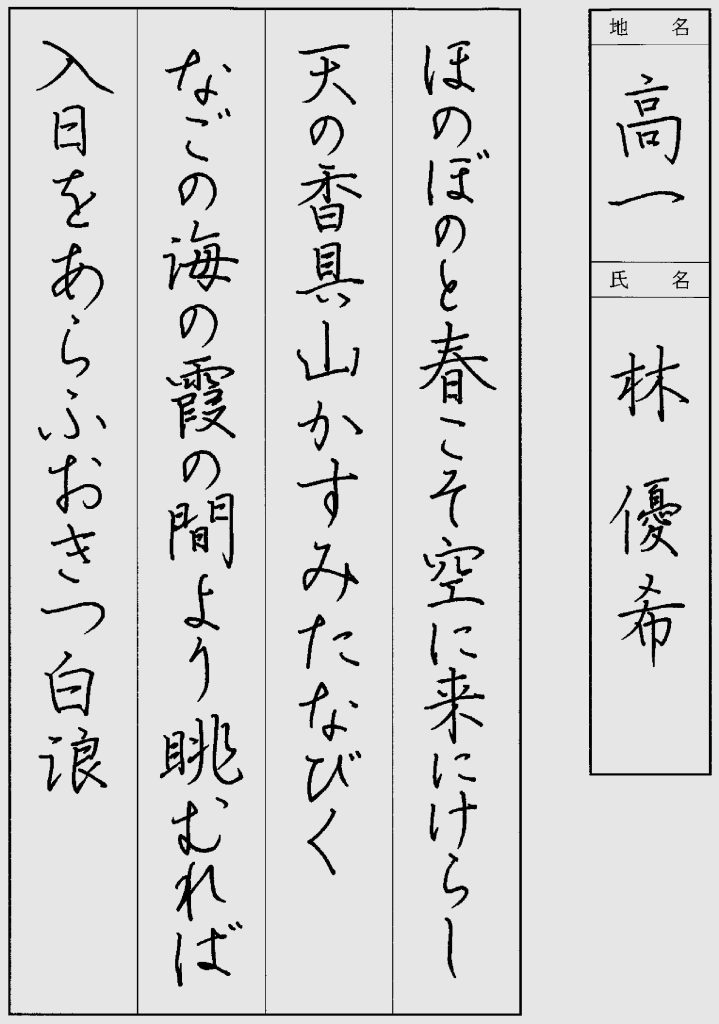 地名
高一
氏名
林優希
ほのぼのと春こそ空に来にけらし
天の香具山かすみたなびく
なごの海の霞の間より眺むれば
入日をあらふおきつ白浪